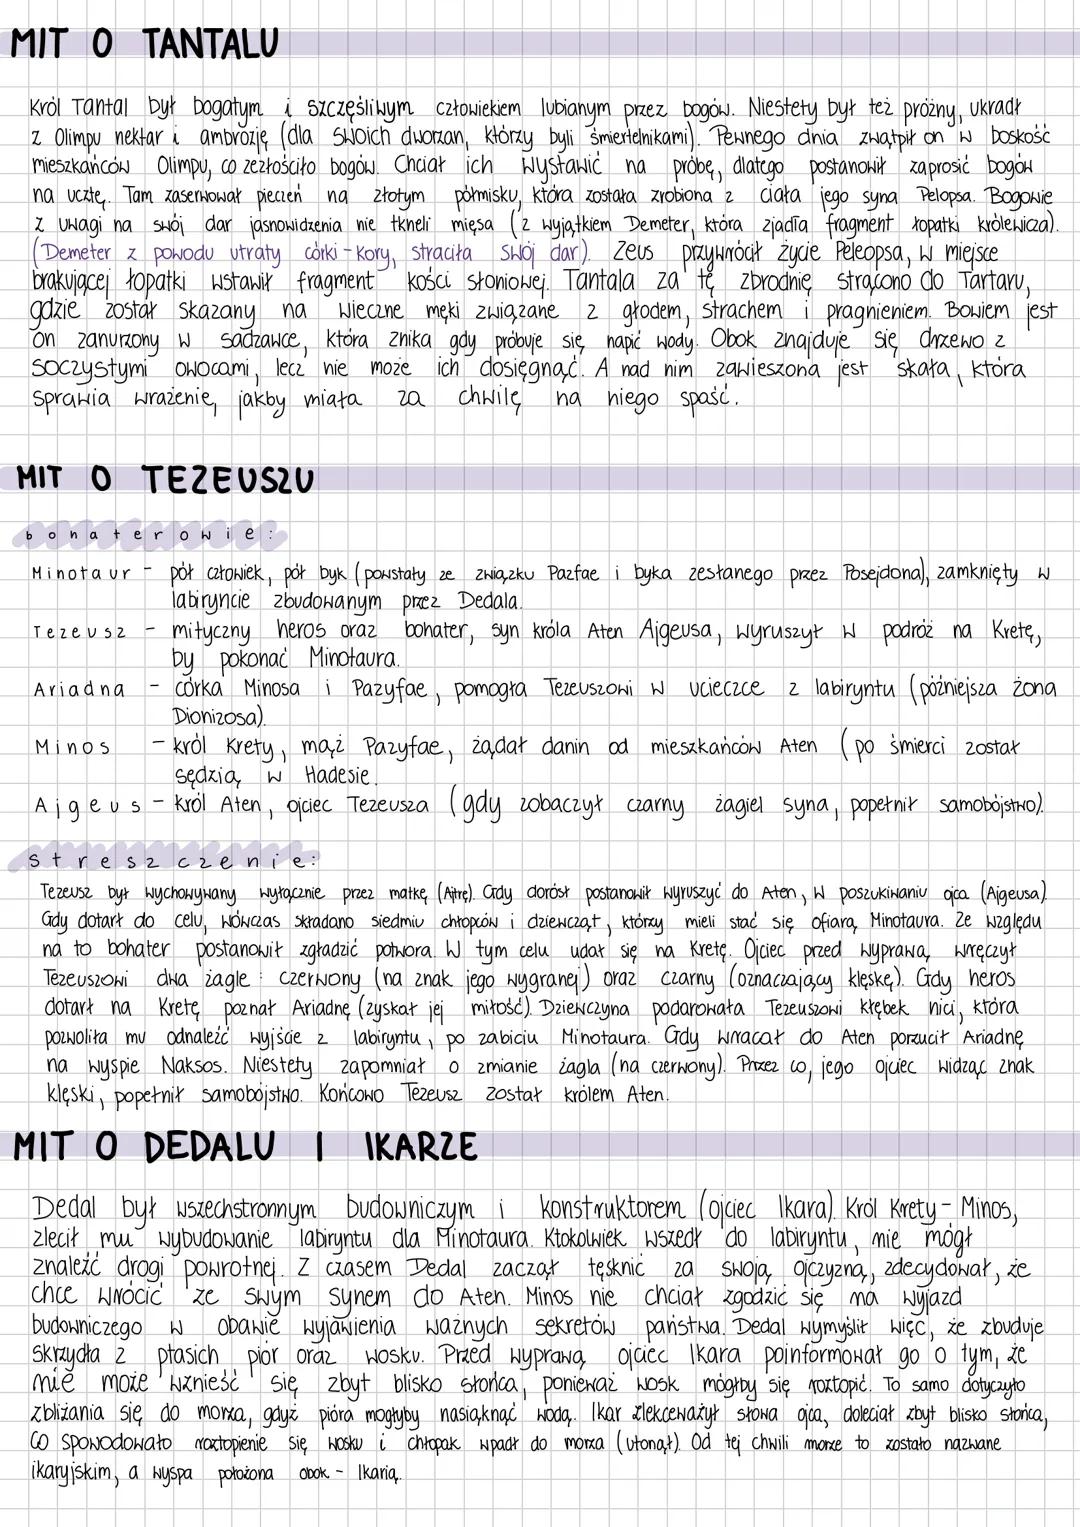 MIT O TANTALU
Król Tantal był bogatym i szczęśliwym człowiekiem lubianym przez bogów. Niestety był też próżny, ukradł
z Olimpu nektar i ambrozję (dla swoich dworzan, którzy byli śmiertelnikami). Pewnego dnia zwątpił on w boskość
mieszkańców Olimpu, co zezłościło bogów. Chciał ich wystawić na próbę, dlatego postanowił zaprosić bogów
na ucztę. Tam zaserwował pieczeń na złotym półmisku, która została zrobiona z ciała jego syna Pelopsa. Bogowie
z uwagi na swój dar jasnowidzenia nie tkneli mięsa (z wyjątkiem Demeter, która zjadła fragment łopatki królewicza).
(Demeter z powodu utraty córki - Kory, straciła swój dar). Zeus przywrócił życie Peleopsa, w miejsce
brakującej łopatki wstawił fragment kości słoniowej. Tantala za tę zbrodnię strącono do Tartaru,
gdzie został skazany na wieczne męki związane z głodem, strachem i pragnieniem. Bowiem jest
on zanurzony w sadzawce, która znika gdy próbuje się napić wody. Obok znajduje się drzewo z
soczystymi owocami, lecz nie może ich dosięgnąć. A nad nim zawieszona jest skała, która
sprawia wrażenie, jakby miała za chwilę na niego spaść.
MIT O TEZEUSZU
bohaterowie:
Minotaur - pół człowiek, pół byk (powstały ze związku Pazfae i byka zesłanego przez Posejdona), zamknięty w
labiryncie zbudowanym przez Dedala.
Tezeusz - mityczny heros oraz bohater, syn króla Aten Ajgeusa, wyruszył w podróż na Kretę,
by pokonać Minotaura.
Ariadna - córka Minosa i Pazyfae, pomogła Tezeuszowi w ucieczce z labiryntu (późniejsza żona
Dionizosa).
Minos - król Krety, mąż Pazyfae, żądał danin od mieszkańców Aten (po śmierci został
sędzią w Hadesie.
Ajgeus - król Aten, ojciec Tezeusza (gdy zobaczył czarny żagiel syna, popełnił samobójstwo).
streszczenie:
Tezeusz był wychowywany wyłącznie przez matkę (Ajtrę). Gdy dorósł postanowił wyruszyć do Aten, w poszukiwaniu ojca (Ajgeusa).
Gdy dotarł do celu, wówczas składano siedmiu chłopców i dziewcząt, którzy mieli stać się ofiarą Minotaura. Ze względu
na to bohater postanowił zgładzić potwora. W tym celu udał się na Kretę. Ojciec przed wyprawą wręczył
Tezeuszowi dwa żagle: czerwony (na znak jego wygranej) oraz czarny (oznaczający klęskę). Gdy heros
dotarł na Kretę poznał Ariadnę (zyskał jej miłość). Dziewczyna podarowała Tezeuszowi kłębek nici, która
pozwoliła mu odnaleźć wyjście z labiryntu, po zabiciu Minotaura. Gdy wracał do Aten porzucił Ariadnę
na wyspie Naksos. Niestety zapomniał o zmianie żagla (na czerwony). Przez co, jego ojciec widząc znak
klęski, popełnił samobójstwo. Końcowo Tezeusz został królem Aten.
MIT O DEDALU I IKARZE
Dedal był wszechstronnym budowniczym i konstruktorem (ojciec Ikara). Król Krety - Minos,
zlecił mu wybudowanie labiryntu dla Minotaura. Ktokolwiek wszedł do labiryntu, nie mógł
znaleźć drogi powrotnej. Z czasem Dedal zaczął tęsknić za swoją ojczyzną, zdecydował, że
chce wrócić ze swym synem do Aten. Minos nie chciał zgodzić się na wyjazd
budowniczego w obawie wyjawienia ważnych sekretów państwa. Dedal wymyślił więc, że zbuduje
skrzydła z ptasich piór oraz wosku. Przed wyprawą ojciec Ikara poinformował go o tym, że
nie może wznieść się zbyt blisko słońca, ponieważ wosk mógłby się roztopić. To samo dotyczyło
zbliżania się do morza, gdyż pióra mogłyby nasiąknąć wodą. Ikar zlekceważył słowa ojca, doleciał zbyt blisko słońca,
co spowodowało roztopienie się wosku i chłopak wpadł do morza (utonął). Od tej chwili morze to zostało nazwane
ikaryjskim, a wyspa położona obok - Ikarią.